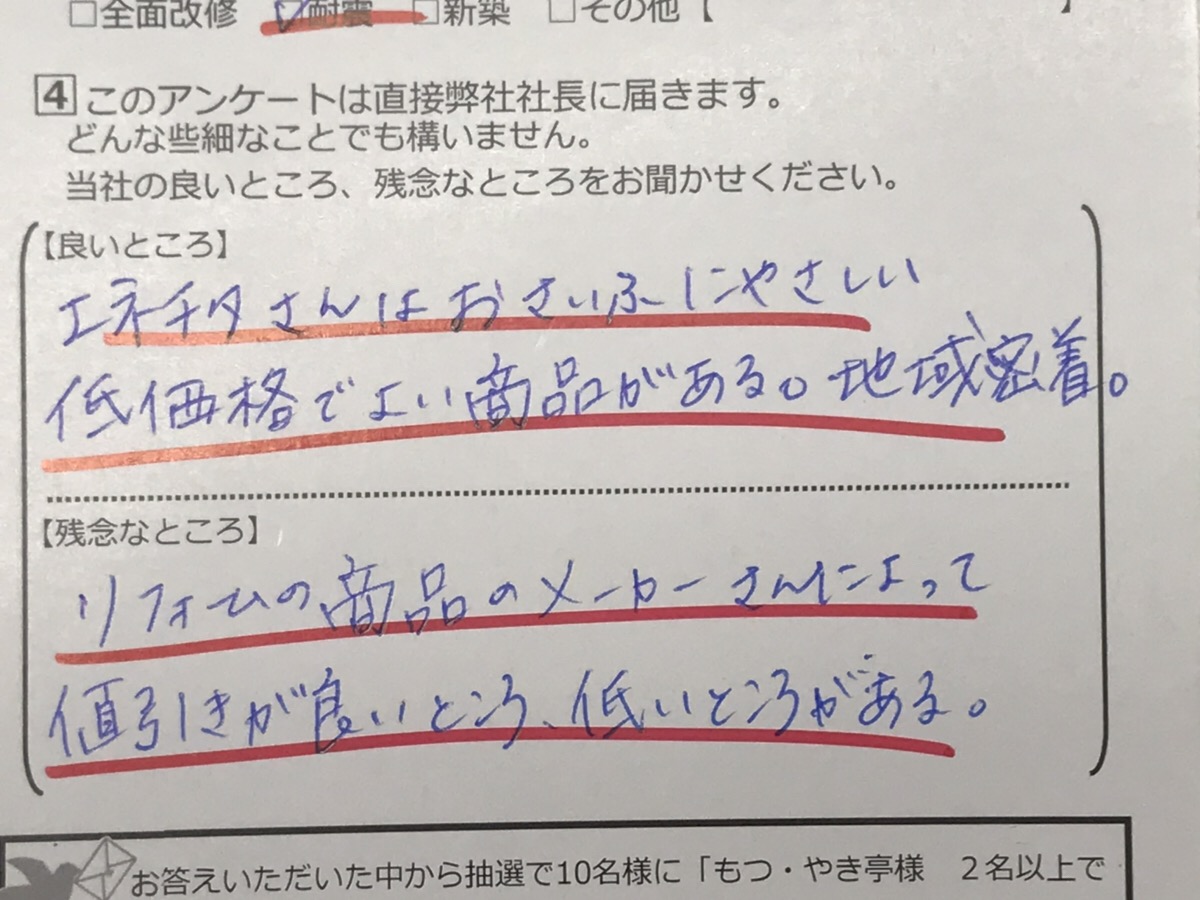 □全面改修 ☑耐震 □新築 □その他【 】
4 このアンケートは直接弊社社長に届きます。
どんな些細なことでも構いません。
当社の良いところ、残念なところをお聞かせください。
【良いところ】
エネチタさんはおさいふにやさしい
低価格でよい商品がある。地域密着。
【残念なところ】
リフォームの商品のメーカーさんによって
値引きが良いところ、低いところがある。
お答えいただいた中から抽選で10名様に「もつ・やき亭様 2名以上で